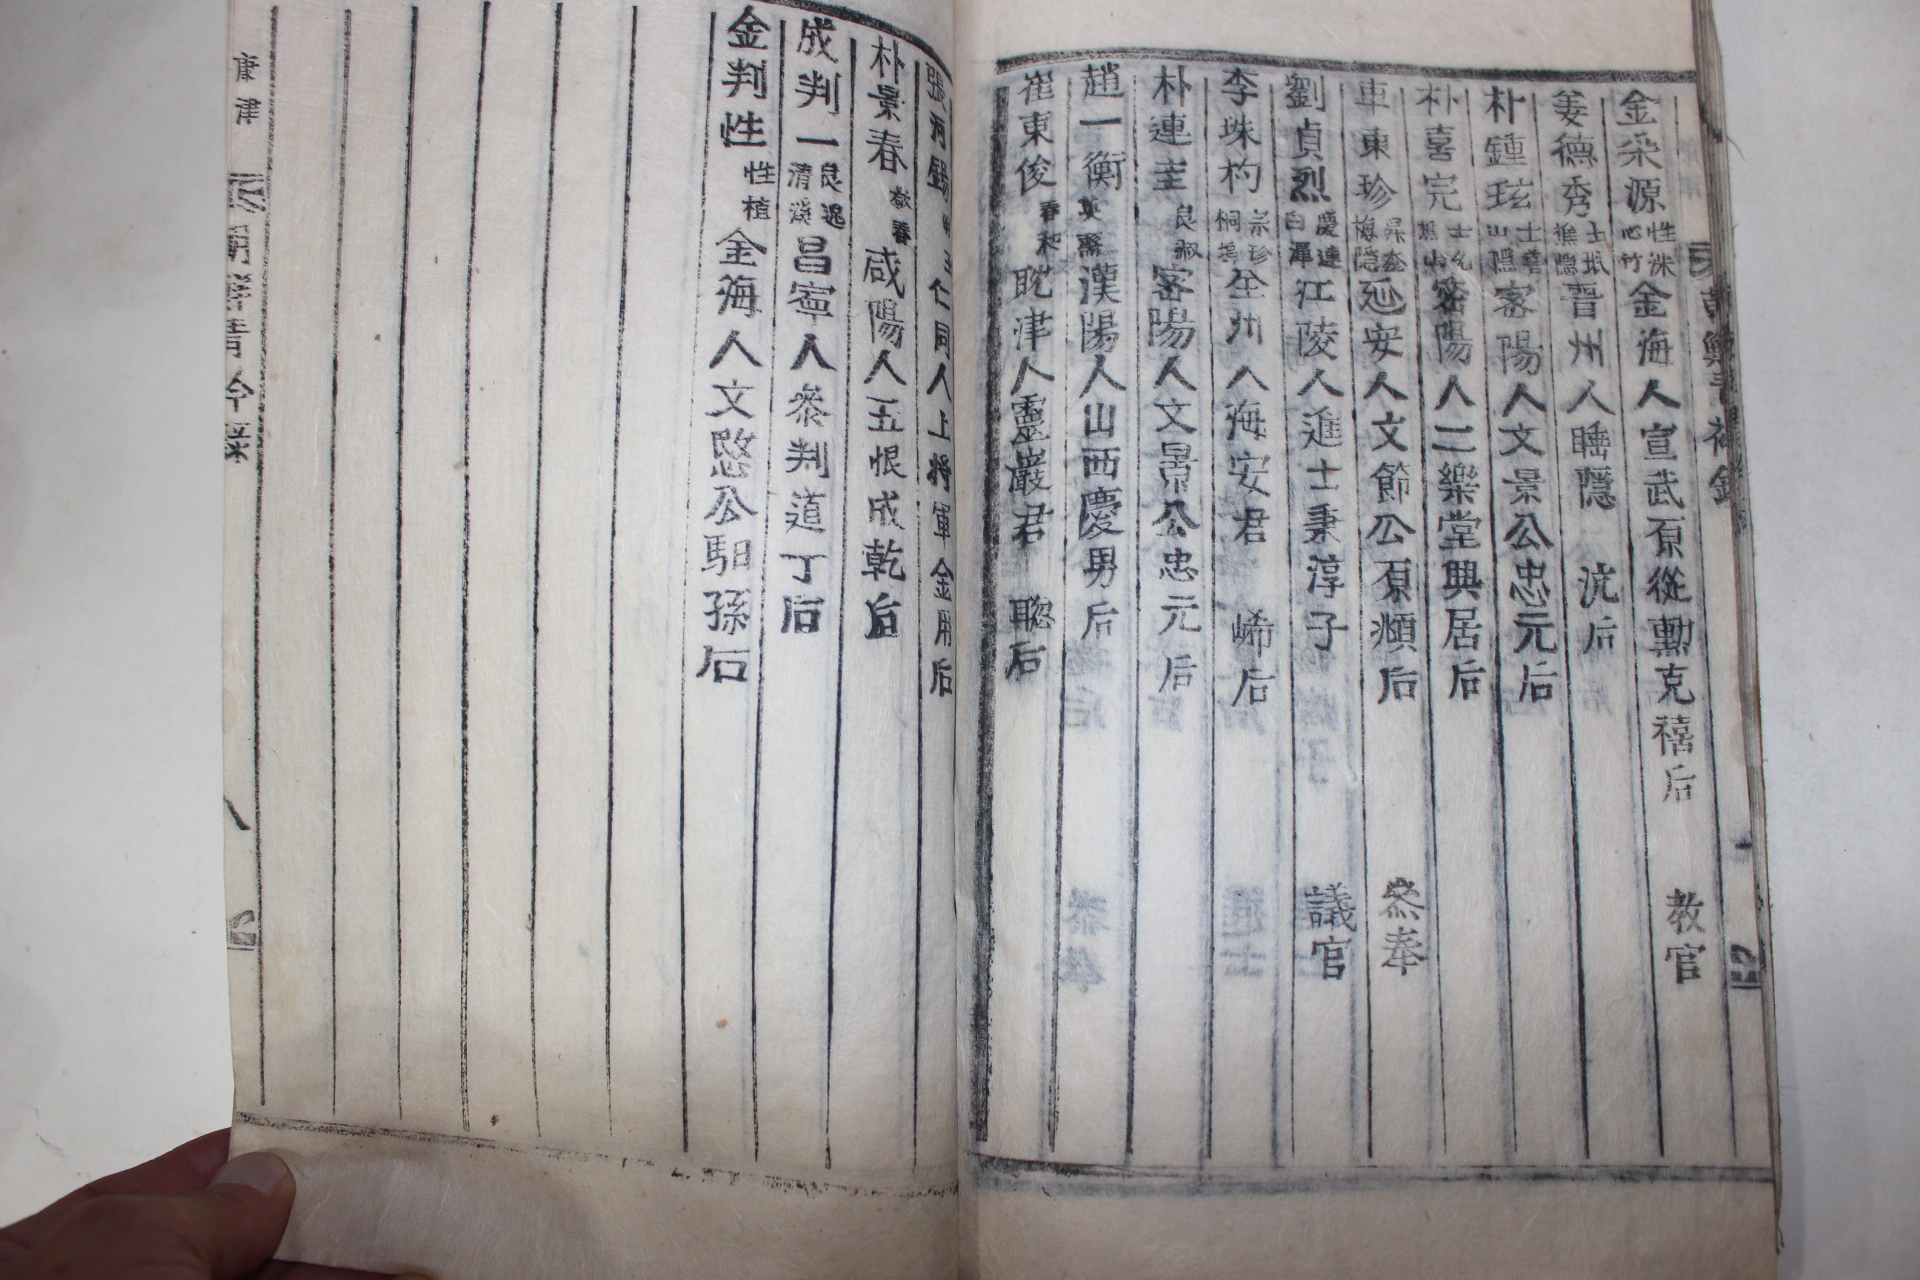 金永源 性洙 心竹 金海人宣武原從勳克禧后 教官
姜德秀 士珉 樵隱 晋州人睡隱 沆后
朴鍾玹 士 隱 密陽人文景公忠元后
朴喜完 士允 山 密陽人二樂堂興居后
車東珍 梅隱 延安人文節公原頫后 叅奉
劉貞烈 慶連 白潭 江陵人進士秉淳子 議官
李珠杓 宗珍 桐塢 全州人海安君 㟓后
朴連圭 良淑 密陽人文景公忠元后
趙一衡 漢陽人山西慶男后
崔東俊 春和 耽津人靈巖君 聡后
張河錫 仁同人上將軍金用后
朴景春 咸陽人五恨成乾后
成判一 良逸 清溪 昌寧人叅判道丁后
金判性 性植 金海人文愍公馹孫后
康津
朝鮮青衿錄
八